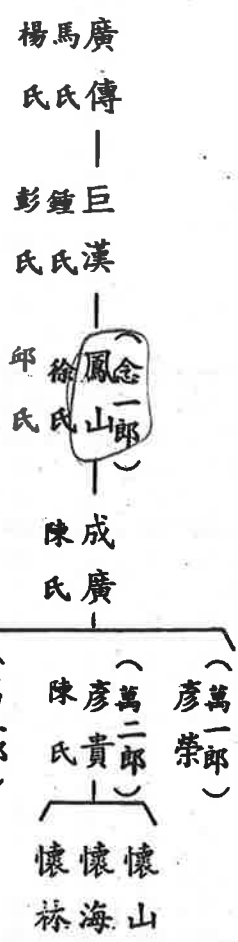 廣傳
馬氏
楊氏
巨漢
鍾氏
彭氏
(念一郎)
鳳山
徐氏
邱氏
成廣
陳氏
(萬一郎)
彥榮
(萬二郎)
彥貴
陳氏
懷山
懷海